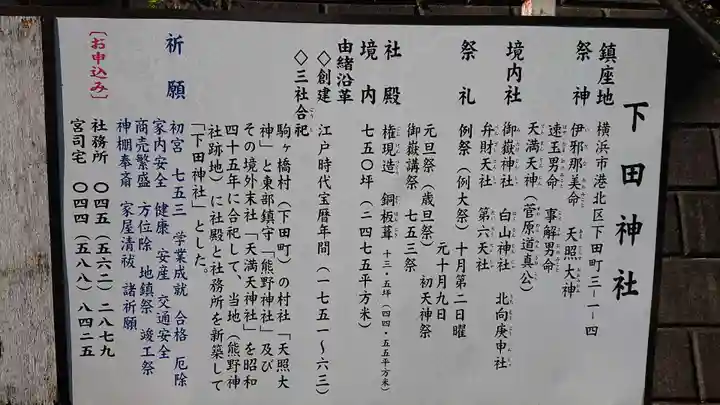 下田神社
鎮座地 横浜市港北区下田町三ー一ー四
祭神 伊邪那美命 天照大神
速玉男命 事解男命
天満天神(菅原道真公)
境内社 御嶽神社 白山神社 北向庚申社
弁財天社 第六天社
祭礼 例祭(例大祭)十月第二日曜
元十月九日
元旦祭(歳旦祭) 初天神祭
御嶽講祭 七五三祭
社殿 権現造 銅板葺 十三・五坪(四四・五五平方米)
境内 七五〇坪(二四七五平方米)
由緒沿革
◇創建 江戸時代宝暦年間(一七五一〜六三)
◇三社合祀
駒ヶ橋村(下田町)の村社「天照大
神」と東部鎮守「熊野神社」及び
その境外末社「天満天神社」を昭和
四十五年に合祀して、当地(熊野神
社跡地)に社殿と社務所を新築して
「下田神社」とした。
祈願 初宮 七五三 学業成就 合格 厄除
家内安全 健康 安産 交通安全
商売繁盛 方位除 地鎮祭 竣工祭
神棚奉斎 家屋清祓 諸祈願
〔お申込み〕
社務所 〇四五(五六二)二八七九
宮司宅 〇四四(五八八)八四二五